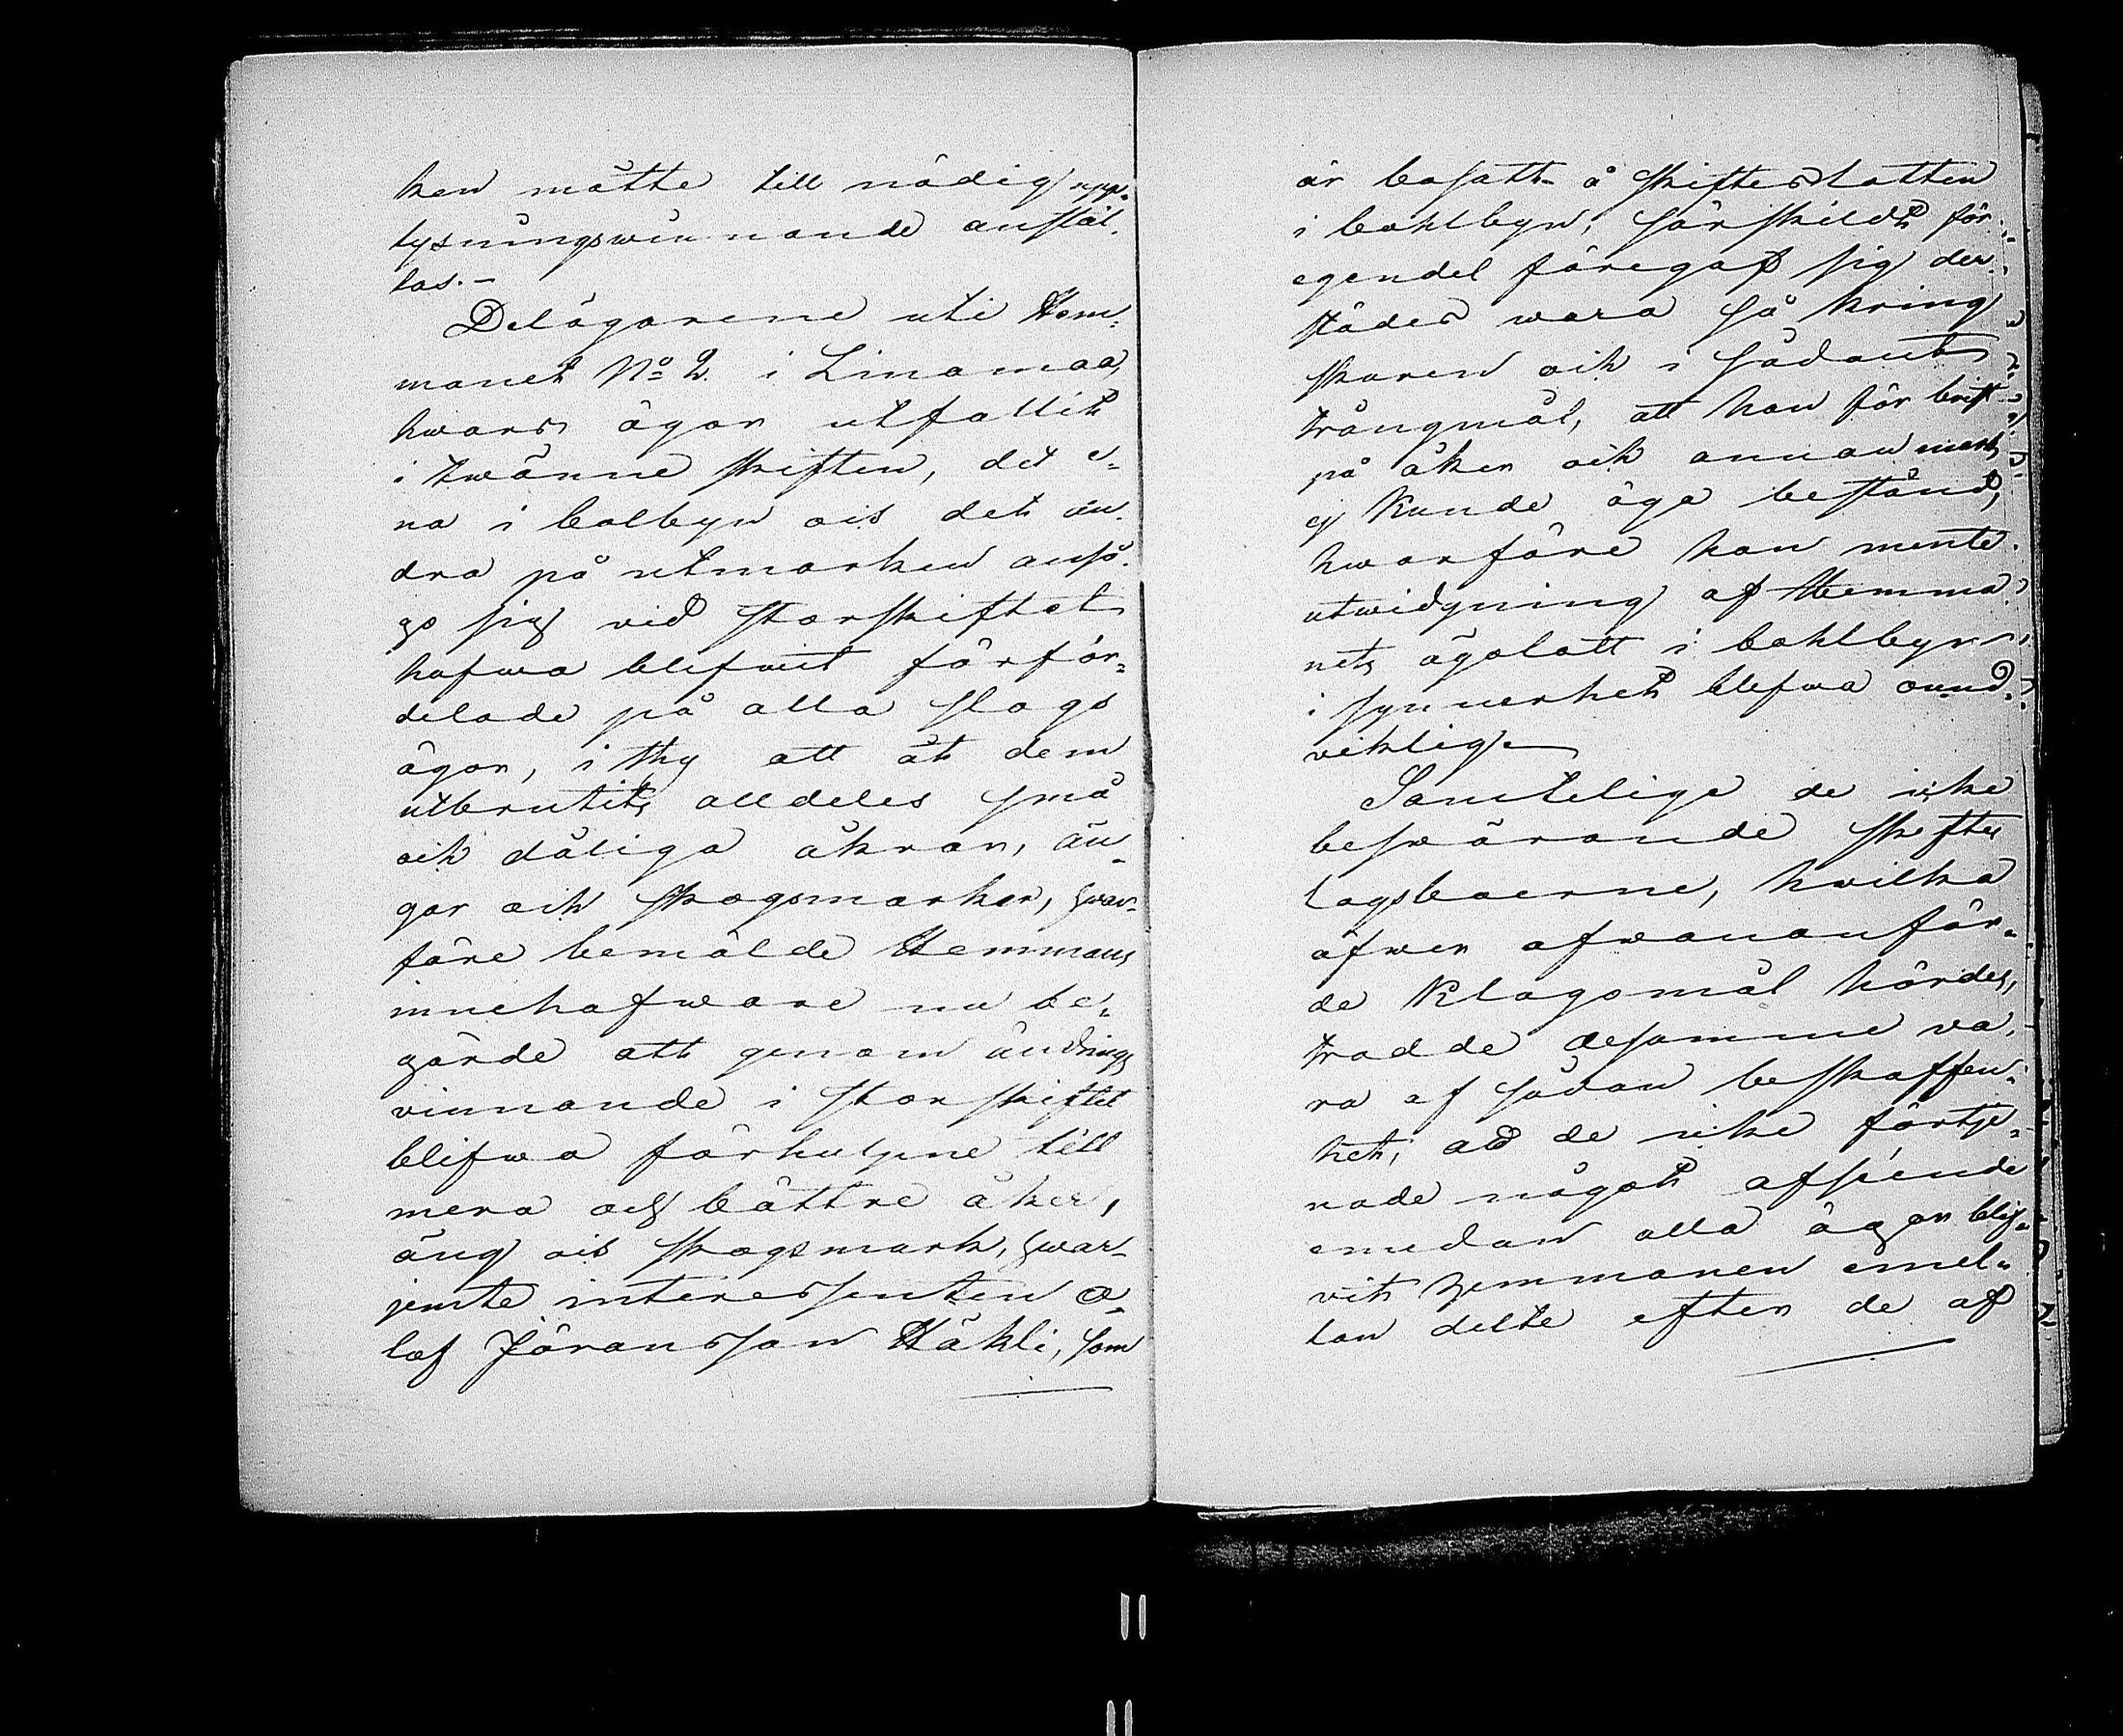 ken måtte till nödig upp-
lysningswinnande anstäl-
las.-
Delägarene uti Hem-
manet No 2. i Linamaa,
hwars ägor utfallit
i twänne skiften, det e-
na i bolbyn och det an-
dra på utmarken anså-
go sig vid storskiftet
hafwa blifwit förför-
delade på alla slags
ägor, i thy att åt dem
utbrutits alldeles små
och dåliga åkrar, än-
gar och skogsmarker, hwar-
före bemälde Hemmans
innehafware nu be-
gärde att genom ändrings
vinnande i storskiftet
blifwa förhulpne till
mera och bättre åker,
äng och skogsmark, hwar-
jemte interessenten O-
lof Jöransson Häkli, som
är bosatt å skifteslotten
i bohlbyn, särskildt för
egendel föregaf sig der-
städes wara så kring
skuren och i sådant
trångmål, att han för brist
på åker och annan mark
ej kunde äga bestånd,
hwarföre han mente
utwidgning af Hemma-
nets ägolott i bohlbyn
i synnerhet blefwa ound-
viklig.
Samtelige de icke
beswärande skiftes
lagsboerne, hwilka
äfwen ofwananför-
de klagomål hördes,
trodde desamme va-
ra af sådan beskaffen-
het, att de icke förtje-
nade något afseende
emedan alla ägor blif-
vit hemmanen emel-
lan delte efter de af